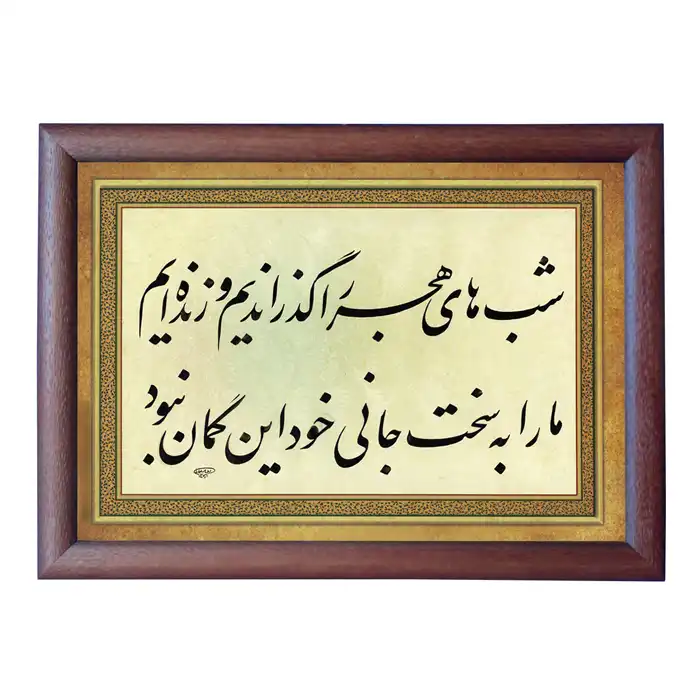 شب های هجر را گذراندیم و زنده ایم
ما را به سخت جانی خود این گمان نبود